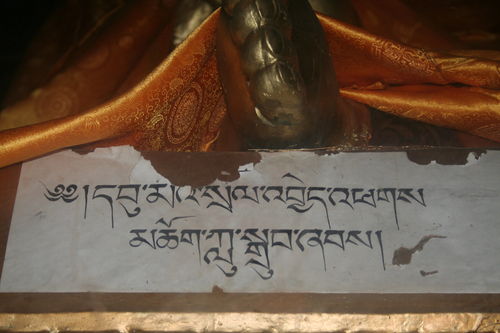 ༄༅།དབུ་མའི་སྲོལ་འབྱེད་འཕགས
མཆོག་ཀླུ་སྒྲུབ་ཞབས།